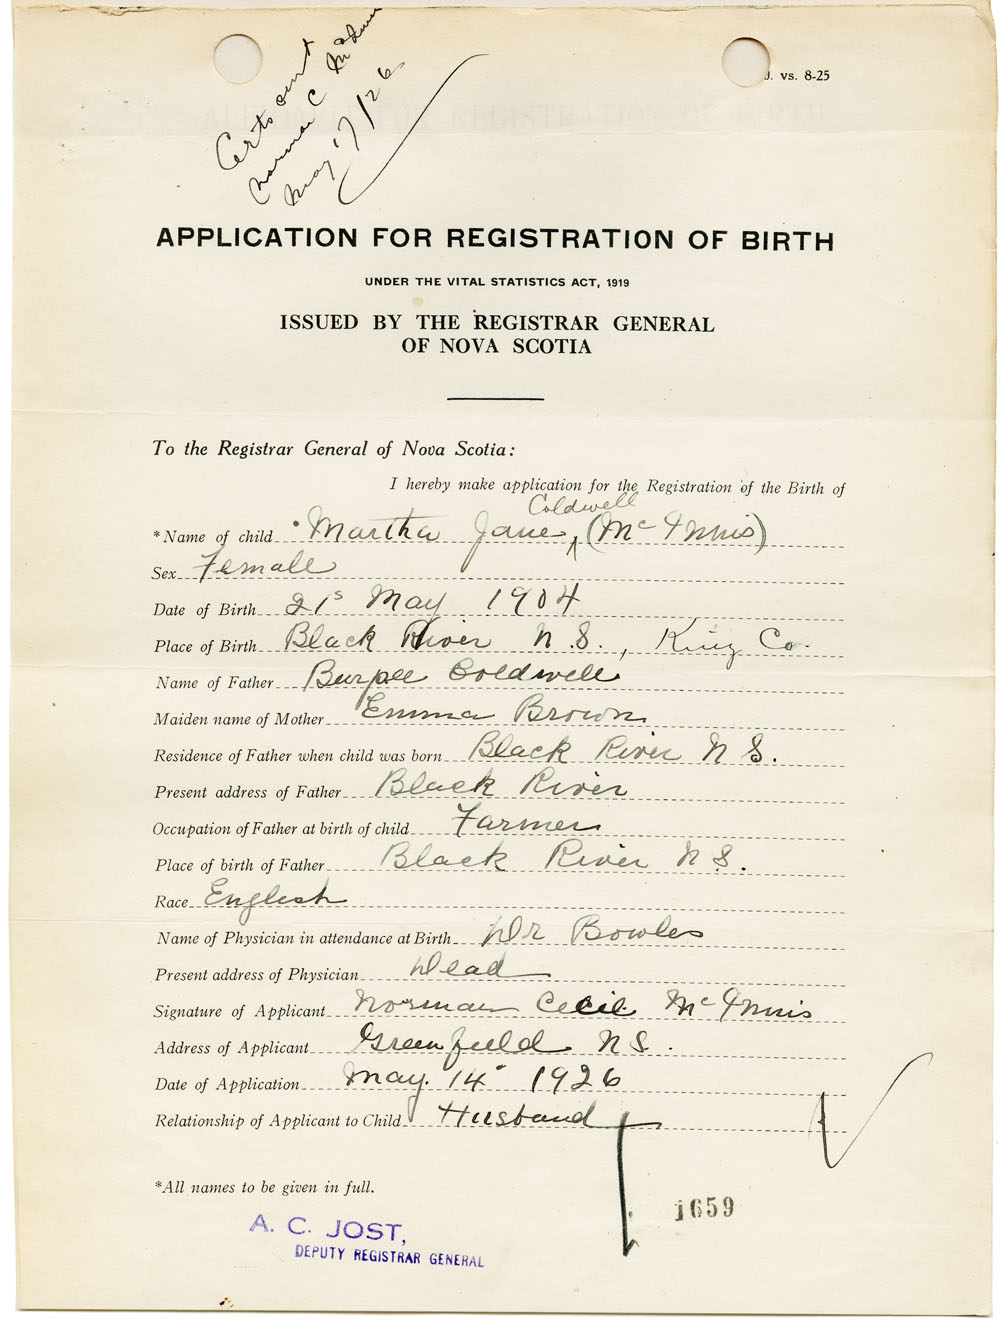 Certs sent
Norman C McInnis
May 17/26
. vs. 8-25
APPLICATION FOR REGISTRATION OF BIRTH
UNDER THE VITAL STATISTICS ACT, 1919
ISSUED BY THE REGISTRAR GENERAL
OF NOVA SCOTIA
To the Registrar General of Nova Scotia:
I hereby make application for the Registration of the Birth of
Coldwell
*Name of child Martha Jane ^ (McInnis)
Sex Female
Date of Birth 21s May 1904
Place of Birth Black River N.S., King Co.
Name of Father Burpee Coldwell
Maiden name of Mother Emma Brown
Residence of Father when child was born Black River N S.
Present address of Father Black River
Occupation of Father at birth of child Farmer
Place of birth of Father Black River N S.
Race English
Name of Physician in attendance at Birth Dr Bowles
Present address of Physician Dead
Signature of Applicant Norman Cecil McInnis
Address of Applicant Greenfield N S.
Date of Application May. 14 1926
Relationship of Applicant to Child Husband
*All names to be given in full.
1659
A. C. JOST,
DEPUTY REGISTRAR GENERAL